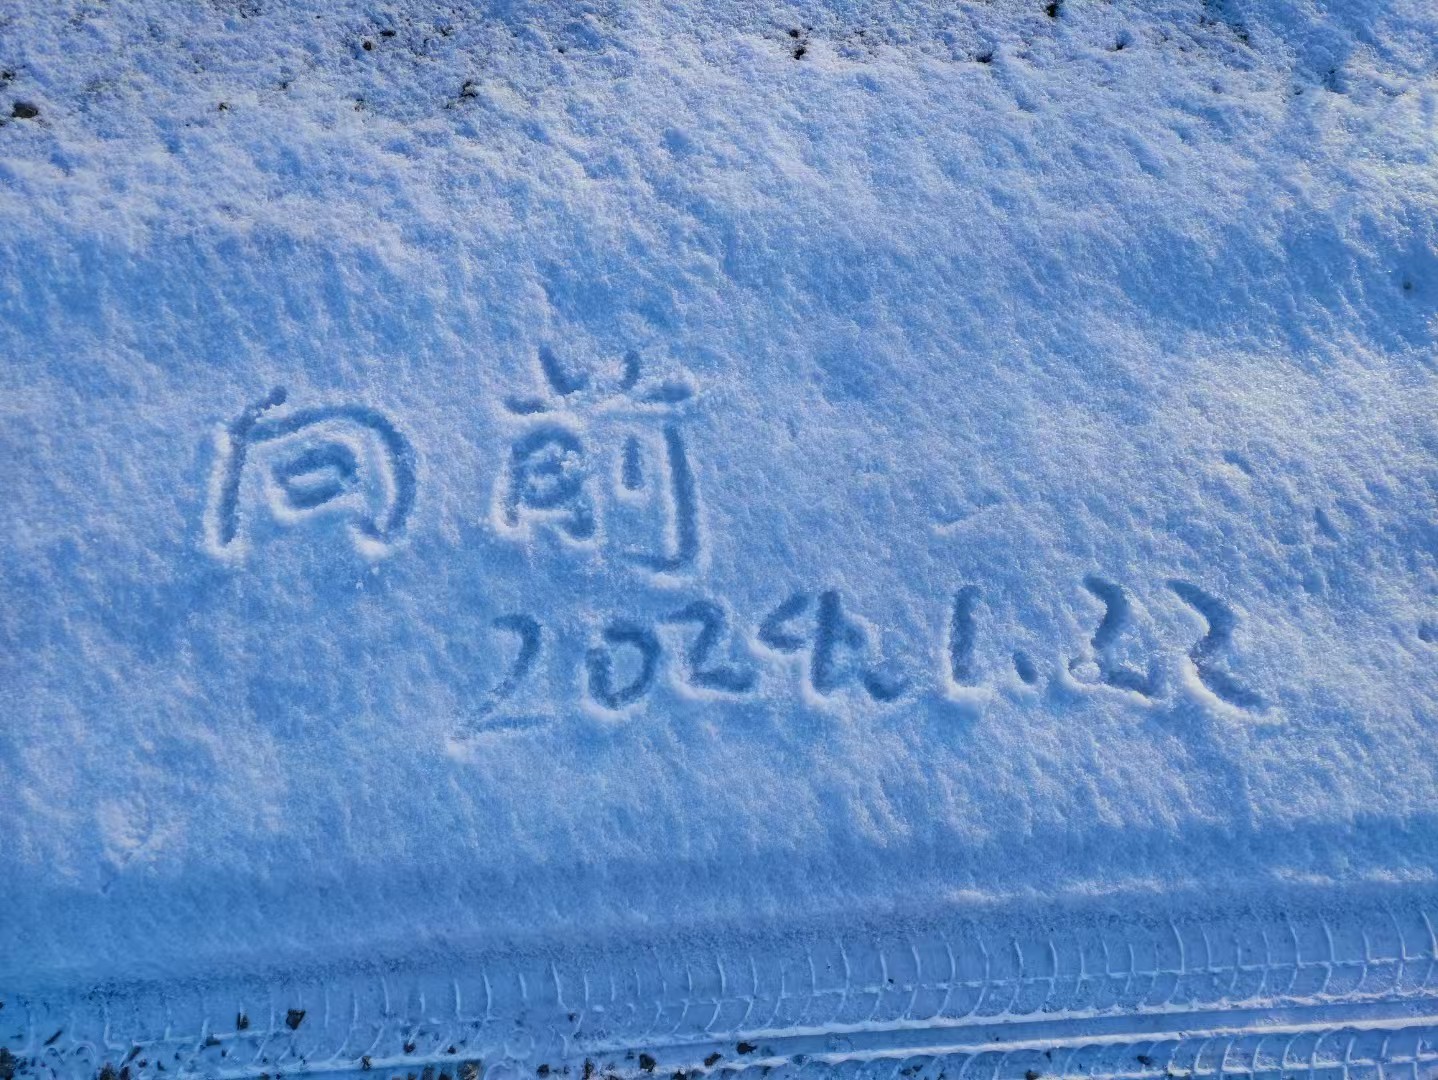 向前
2024.1.22